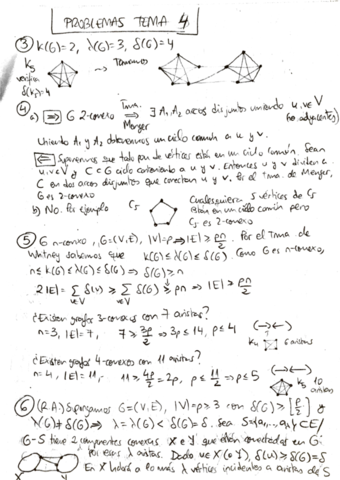 PROBLEMAS TEMA 4
③ K(G)=2, λ(G)=3, δ(G)=4
K₅
verifica
δ(K₅)=4
④ a) ⇒ G 2-conexo ⇒ ∃ A₁, A₂ arcos disjuntos uniendo u, v ∈ V
Tma.
Menger
(no adyacentes)
Uniendo A₁ y A₂ obtenemos un ciclo común a u y v.
⇐ Supongamos que todo par de vértices están en un ciclo común. Sean
u, v ∈ V y C ⊂ G ciclo conteniendo a u y v. Entonces u y v dividen a
C en dos arcos disjuntos que conectan u y v. Por el Tma. de Menger,
G es 2-conexo
b) No. Por ejemplo
Cualesquiera 5 vértices de C₅
están en un ciclo común pero
C₅ es 2-conexo
⑤ G n-conexo, G=(V,E), |V|=p ⇒ |E| ≥ pn/2. Por el Tma de
Whitney sabemos que K(G) ≤ λ(G) ≤ δ(G). Como G es n-conexo,
n ≤ K(G) ≤ λ(G) ≤ δ(G) ⇒ δ(G) ≥ n
2|E| = Σ δ(v) ≥ Σ δ(G) ≥ pn ⇒ |E| ≥ pn/2
v∈V v∈V
¿Existen grafos 3-conexos con 7 aristas?
n=3, |E|=7, 7 ≥ 3p/2 ⇒ 3p ≤ 14, p ≤ 4 (→←)
K₄ 6 aristas
¿Existen grafos 4-conexos con 11 aristas?
n=4, |E|=11, 11 ≥ 4p/2 = 2p, p ≤ 11/2 ⇒ p ≤ 5 (→←)
K₅ 10 aristas
⑥ (R.A.) Supongamos G=(V,E), |V|=p ≥ 3 con δ(G) ≥ [p/2] y
λ(G) ≠ δ(G) ⇒ λ = λ(G) < δ(G) = δ. Sea S={a₁,...,aλ} ⊂ E /
G-S tiene 2 componentes conexas X e Y que están conectadas en G
por esas λ aristas. Dado v ∈ X (o Y), δ(v) ≥ δ(G) = δ
En X habrá a lo más λ vértices incidentes a aristas de S